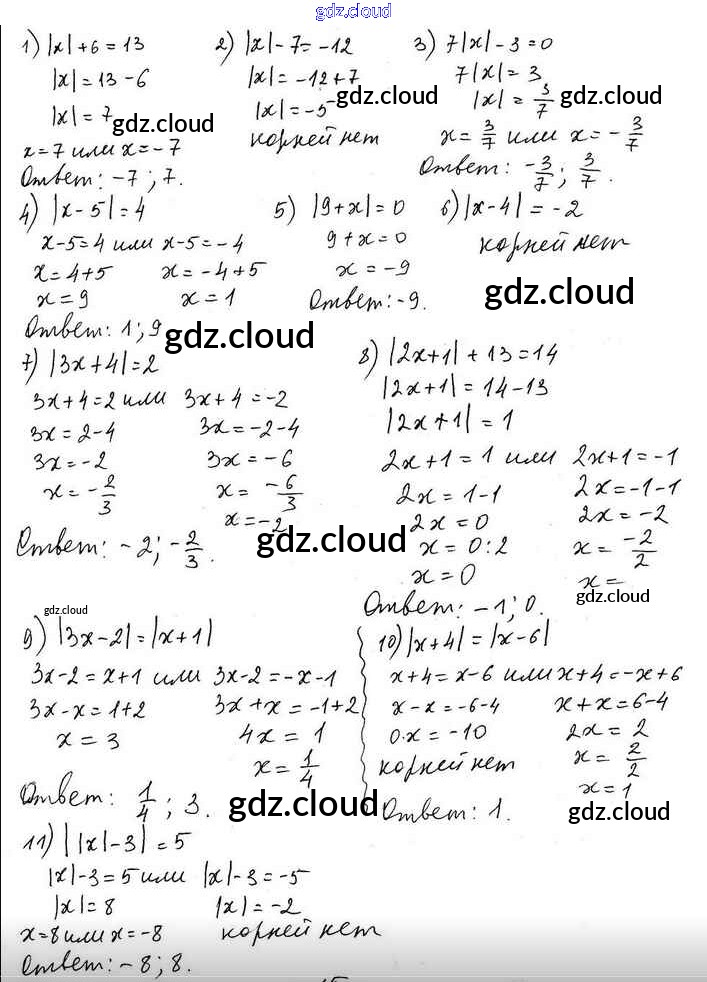 gdz.cloud
1) |x| + 6 = 13
|x| = 13 - 6
|x| = 7
gdz.cloud
x = 7 или x = -7
Ответ: -7; 7.
2) |x| - 7 = -12
|x| = -12 + 7
|x| = -5
gdz.cloud
корней нет
3) 7|x| - 3 = 0
7|x| = 3
|x| = 3/7
gdz.cloud
x = 3/7 или x = -3/7
Ответ: -3/7; 3/7.
4) |x - 5| = 4
x - 5 = 4 или x - 5 = -4
x = 4 + 5 x = -4 + 5
x = 9 x = 1
Ответ: 1; 9
gdz.cloud
5) |9 + x| = 0
9 + x = 0
x = -9
Ответ: -9.
6) |x - 4| = -2
корней нет
gdz.cloud
7) |3x + 4| = 2
3x + 4 = 2 или 3x + 4 = -2
3x = 2 - 4 3x = -2 - 4
3x = -2 3x = -6
x = -2/3 x = -6/3
x = -2
gdz.cloud
Ответ: -2; -2/3.
8) |2x + 1| + 13 = 14
|2x + 1| = 14 - 13
|2x + 1| = 1
2x + 1 = 1 или 2x + 1 = -1
2x = 1 - 1 2x = -1 - 1
2x = 0 2x = -2
x = 0 : 2 x = -2/2
x = 0 x =
gdz.cloud
Ответ: -1; 0.
gdz.cloud
9) |3x - 2| = |x + 1|
3x - 2 = x + 1 или 3x - 2 = -x - 1
3x - x = 1 + 2 3x + x = -1 + 2
x = 3 4x = 1
x = 1/4
Ответ: 1/4; 3.
gdz.cloud
10) |x + 4| = |x - 6|
x + 4 = x - 6 или x + 4 = -x + 6
x - x = -6 - 4 x + x = 6 - 4
0·x = -10 2x = 2
корней нет x = 2/2
x = 1
Ответ: 1.
gdz.cloud
11) ||x| - 3| = 5
|x| - 3 = 5 или |x| - 3 = -5
|x| = 8 |x| = -2
x = 8 или x = -8 корней нет
Ответ: -8; 8.